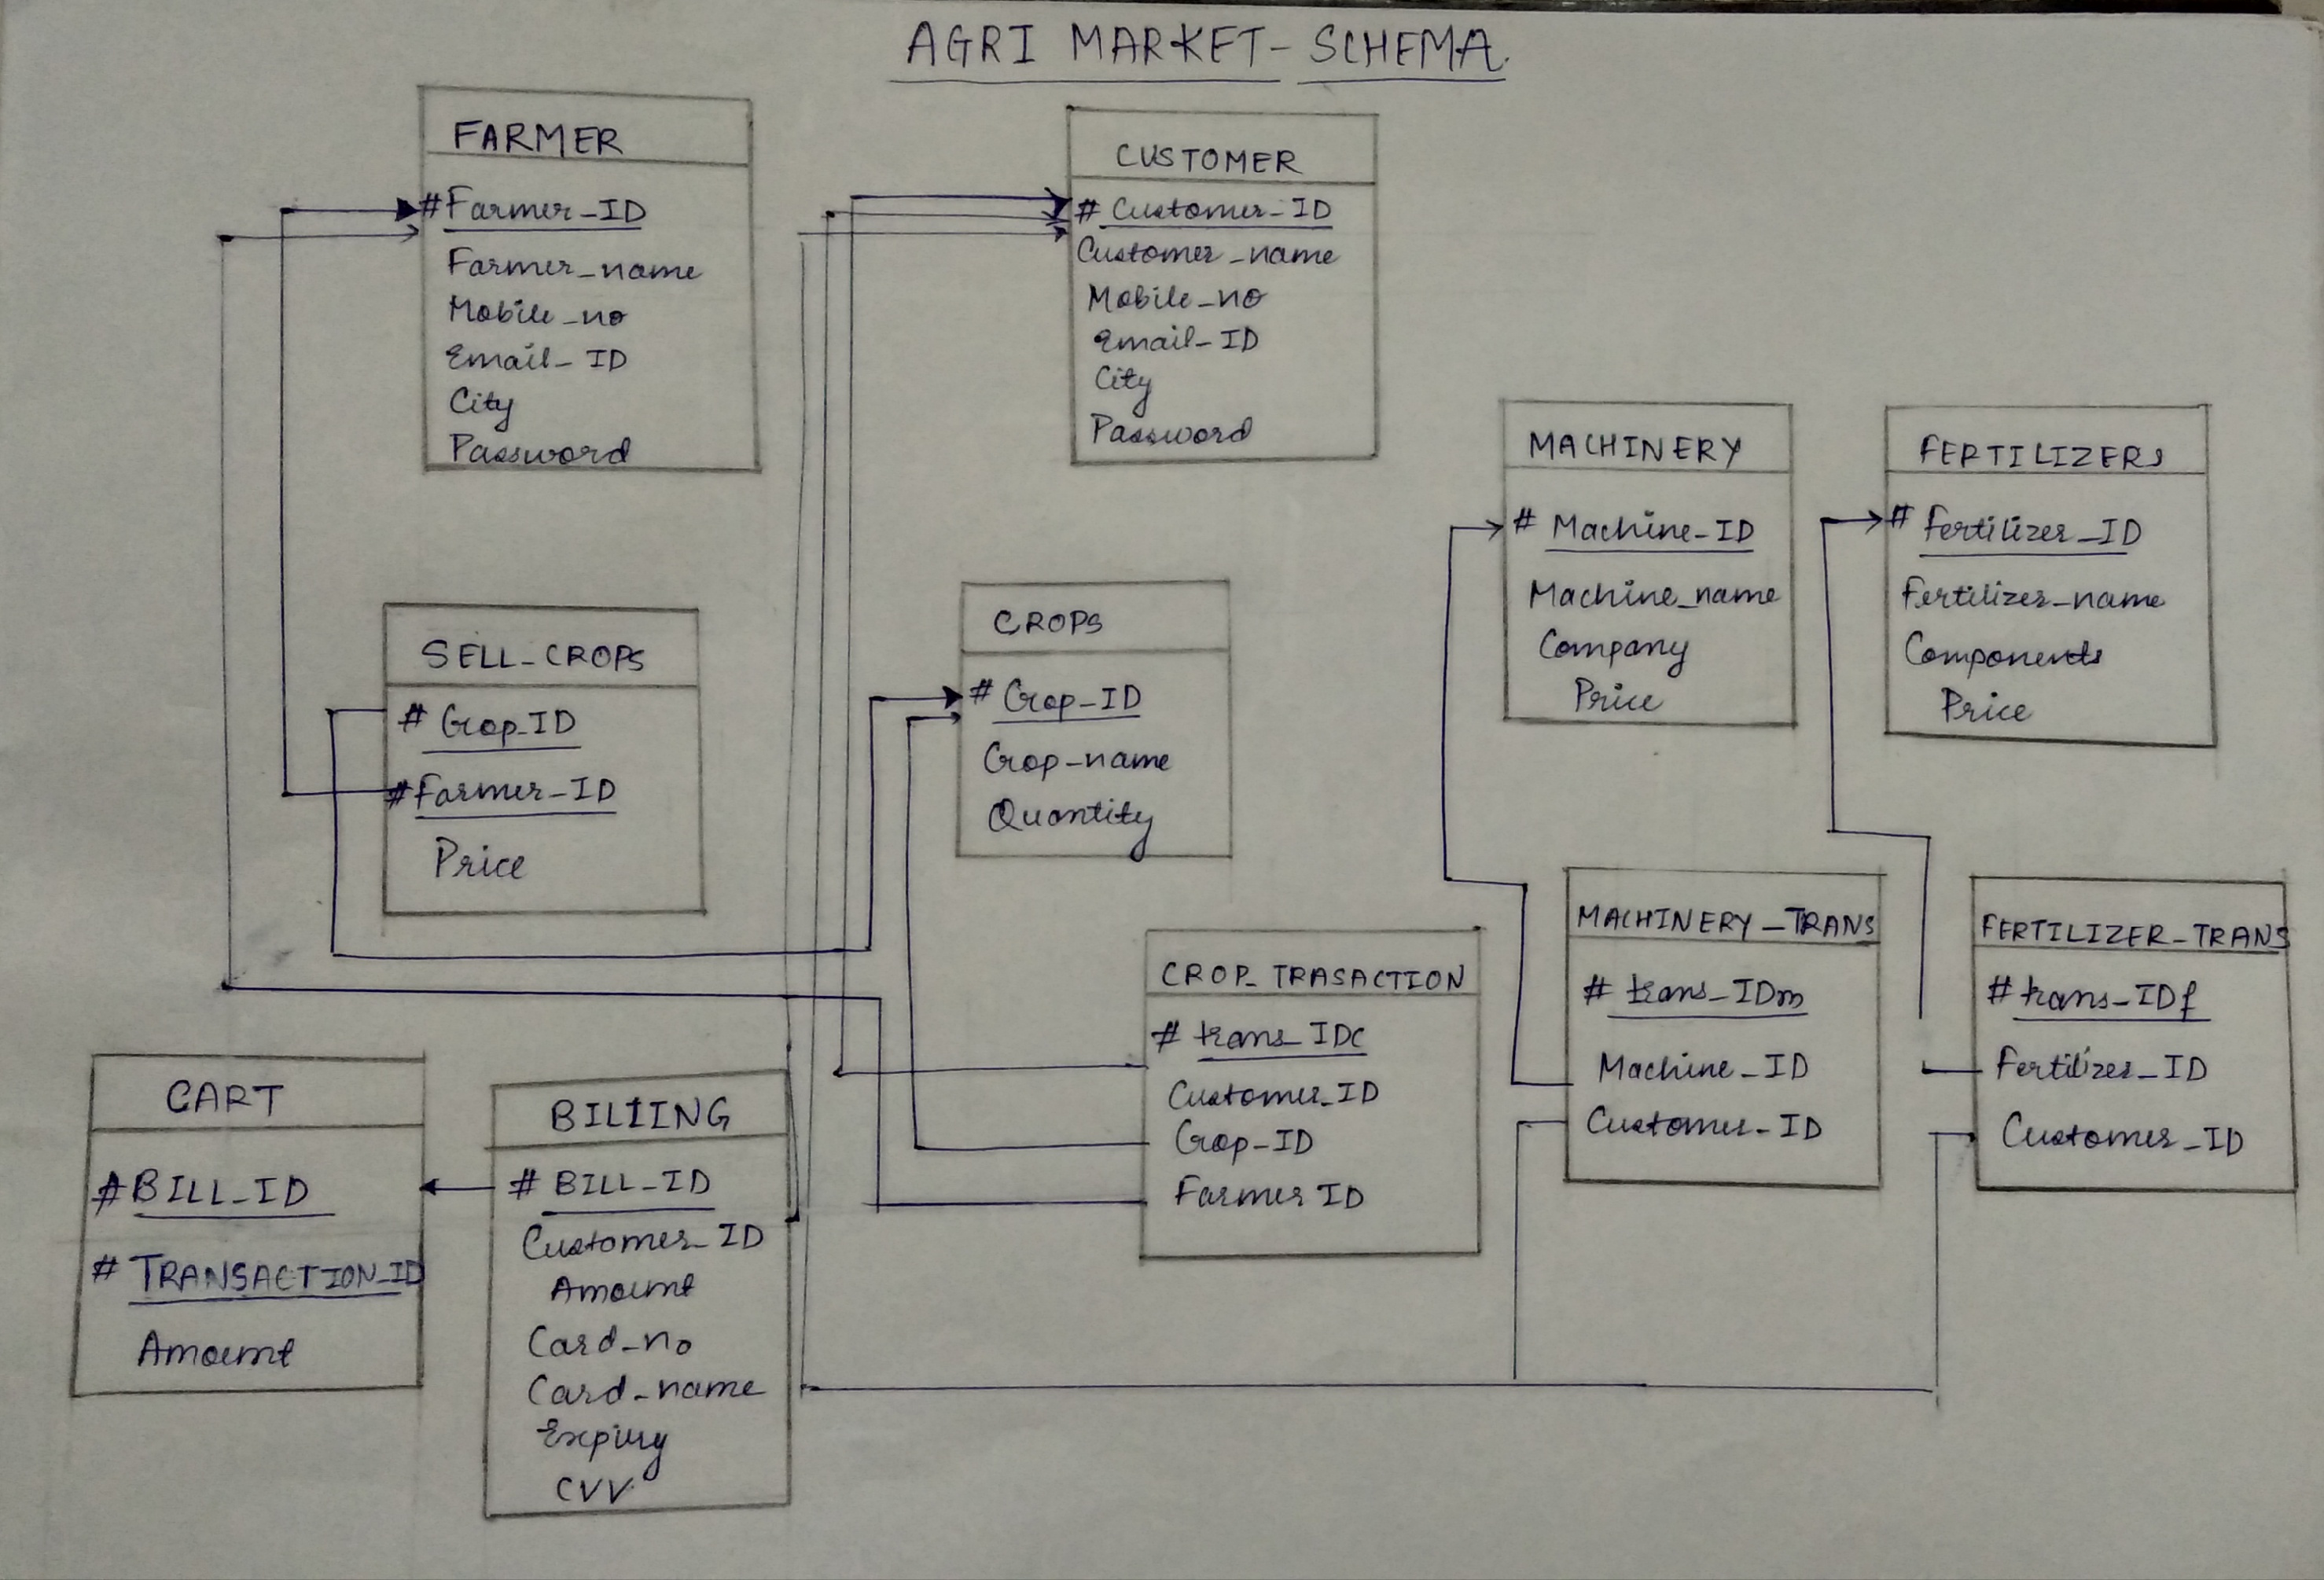 AGRI MARKET- SCHEMA
FARMER
#Farmer_ID
Farmer_name
Mobile_no
Email_ID
City
Password
CUSTOMER
# Customer_ID
Customer_name
Mobile_no
Email_ID
City
Password
MACHINERY
# Machine_ID
Machine_name
Company
Price
FERTILIZERS
# Fertilizer_ID
Fertilizer_name
Components
Price
SELL_CROPS
# Crop_ID
#Farmer_ID
Price
CROPS
# Crop_ID
Crop_name
Quantity
CROP_TRASACTION
# trans_IDc
Customer_ID
Crop_ID
Farmer ID
MACHINERY_TRANS
# trans_IDm
Machine_ID
Customer_ID
FERTILIZER_TRANS
# trans_IDf
Fertilizer_ID
Customer_ID
CART
#BILL_ID
# TRANSACTION_ID
Amount
BILLING
# BILL_ID
Customer_ID
Amount
Card_no
Card_name
Expiry
CVV